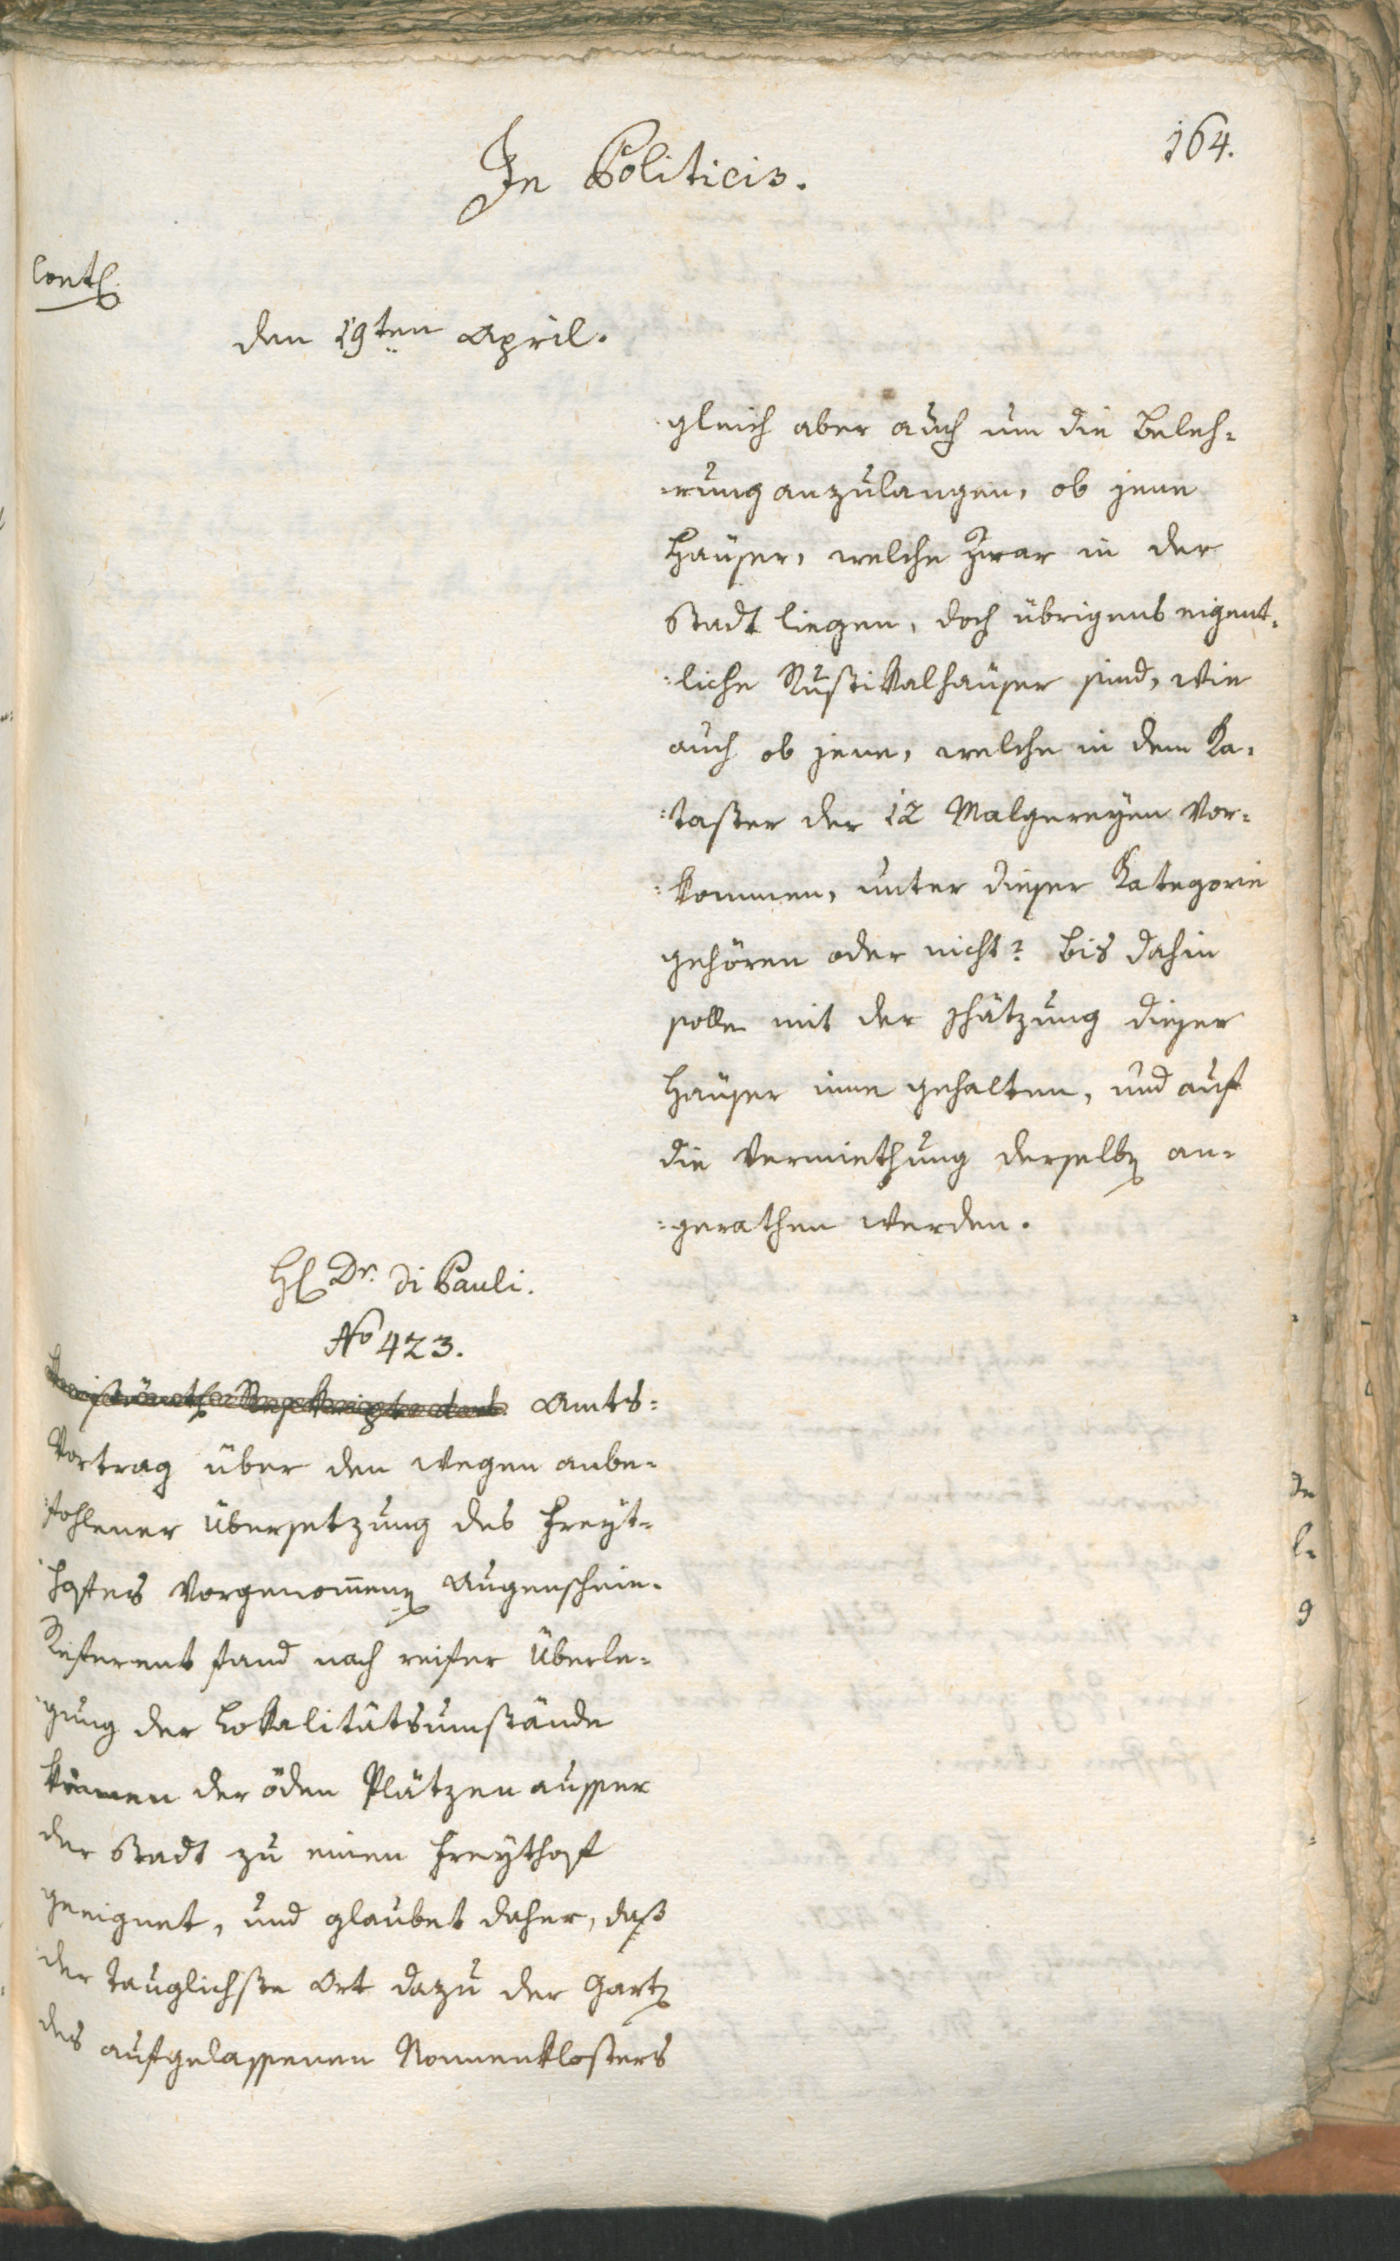 In Politicis.
164.
Cont.
den 19ten April.
gleich aber auch um die Beleh-
rung anzulangen, ob jene
Häuser, welche zwar in der
Stadt liegen, doch übrigens eigent-
:liche Rustikalhäuser sind, wie
auch ob jene, welche in dem Ka-
:taster der 12 Malgereyen vor-
:kommen, unter dieser Kategorie
gehören oder nicht? bis dahin
solle mit der Schätzung dieser
Häuser inne gehalten, und auf
die Vermiethung derselb an-
:gerathen werden.
H Dr. di Pauli.
No 423.
Amts-
Vortrag über den wegen anbe-
fohlener Übersetzung des Freyt-
hofes vorgenomen Augenschein.
Referent fand nach reifer Überle-
gung der Lokalitätsumstände
keinen der öden Plätzen ausser
der Stadt zu einen Freythof
geeignet, und glaubet daher, daß
der tauglichste Ort dazu der Gart
des aufgelassenen Nonnenklosters